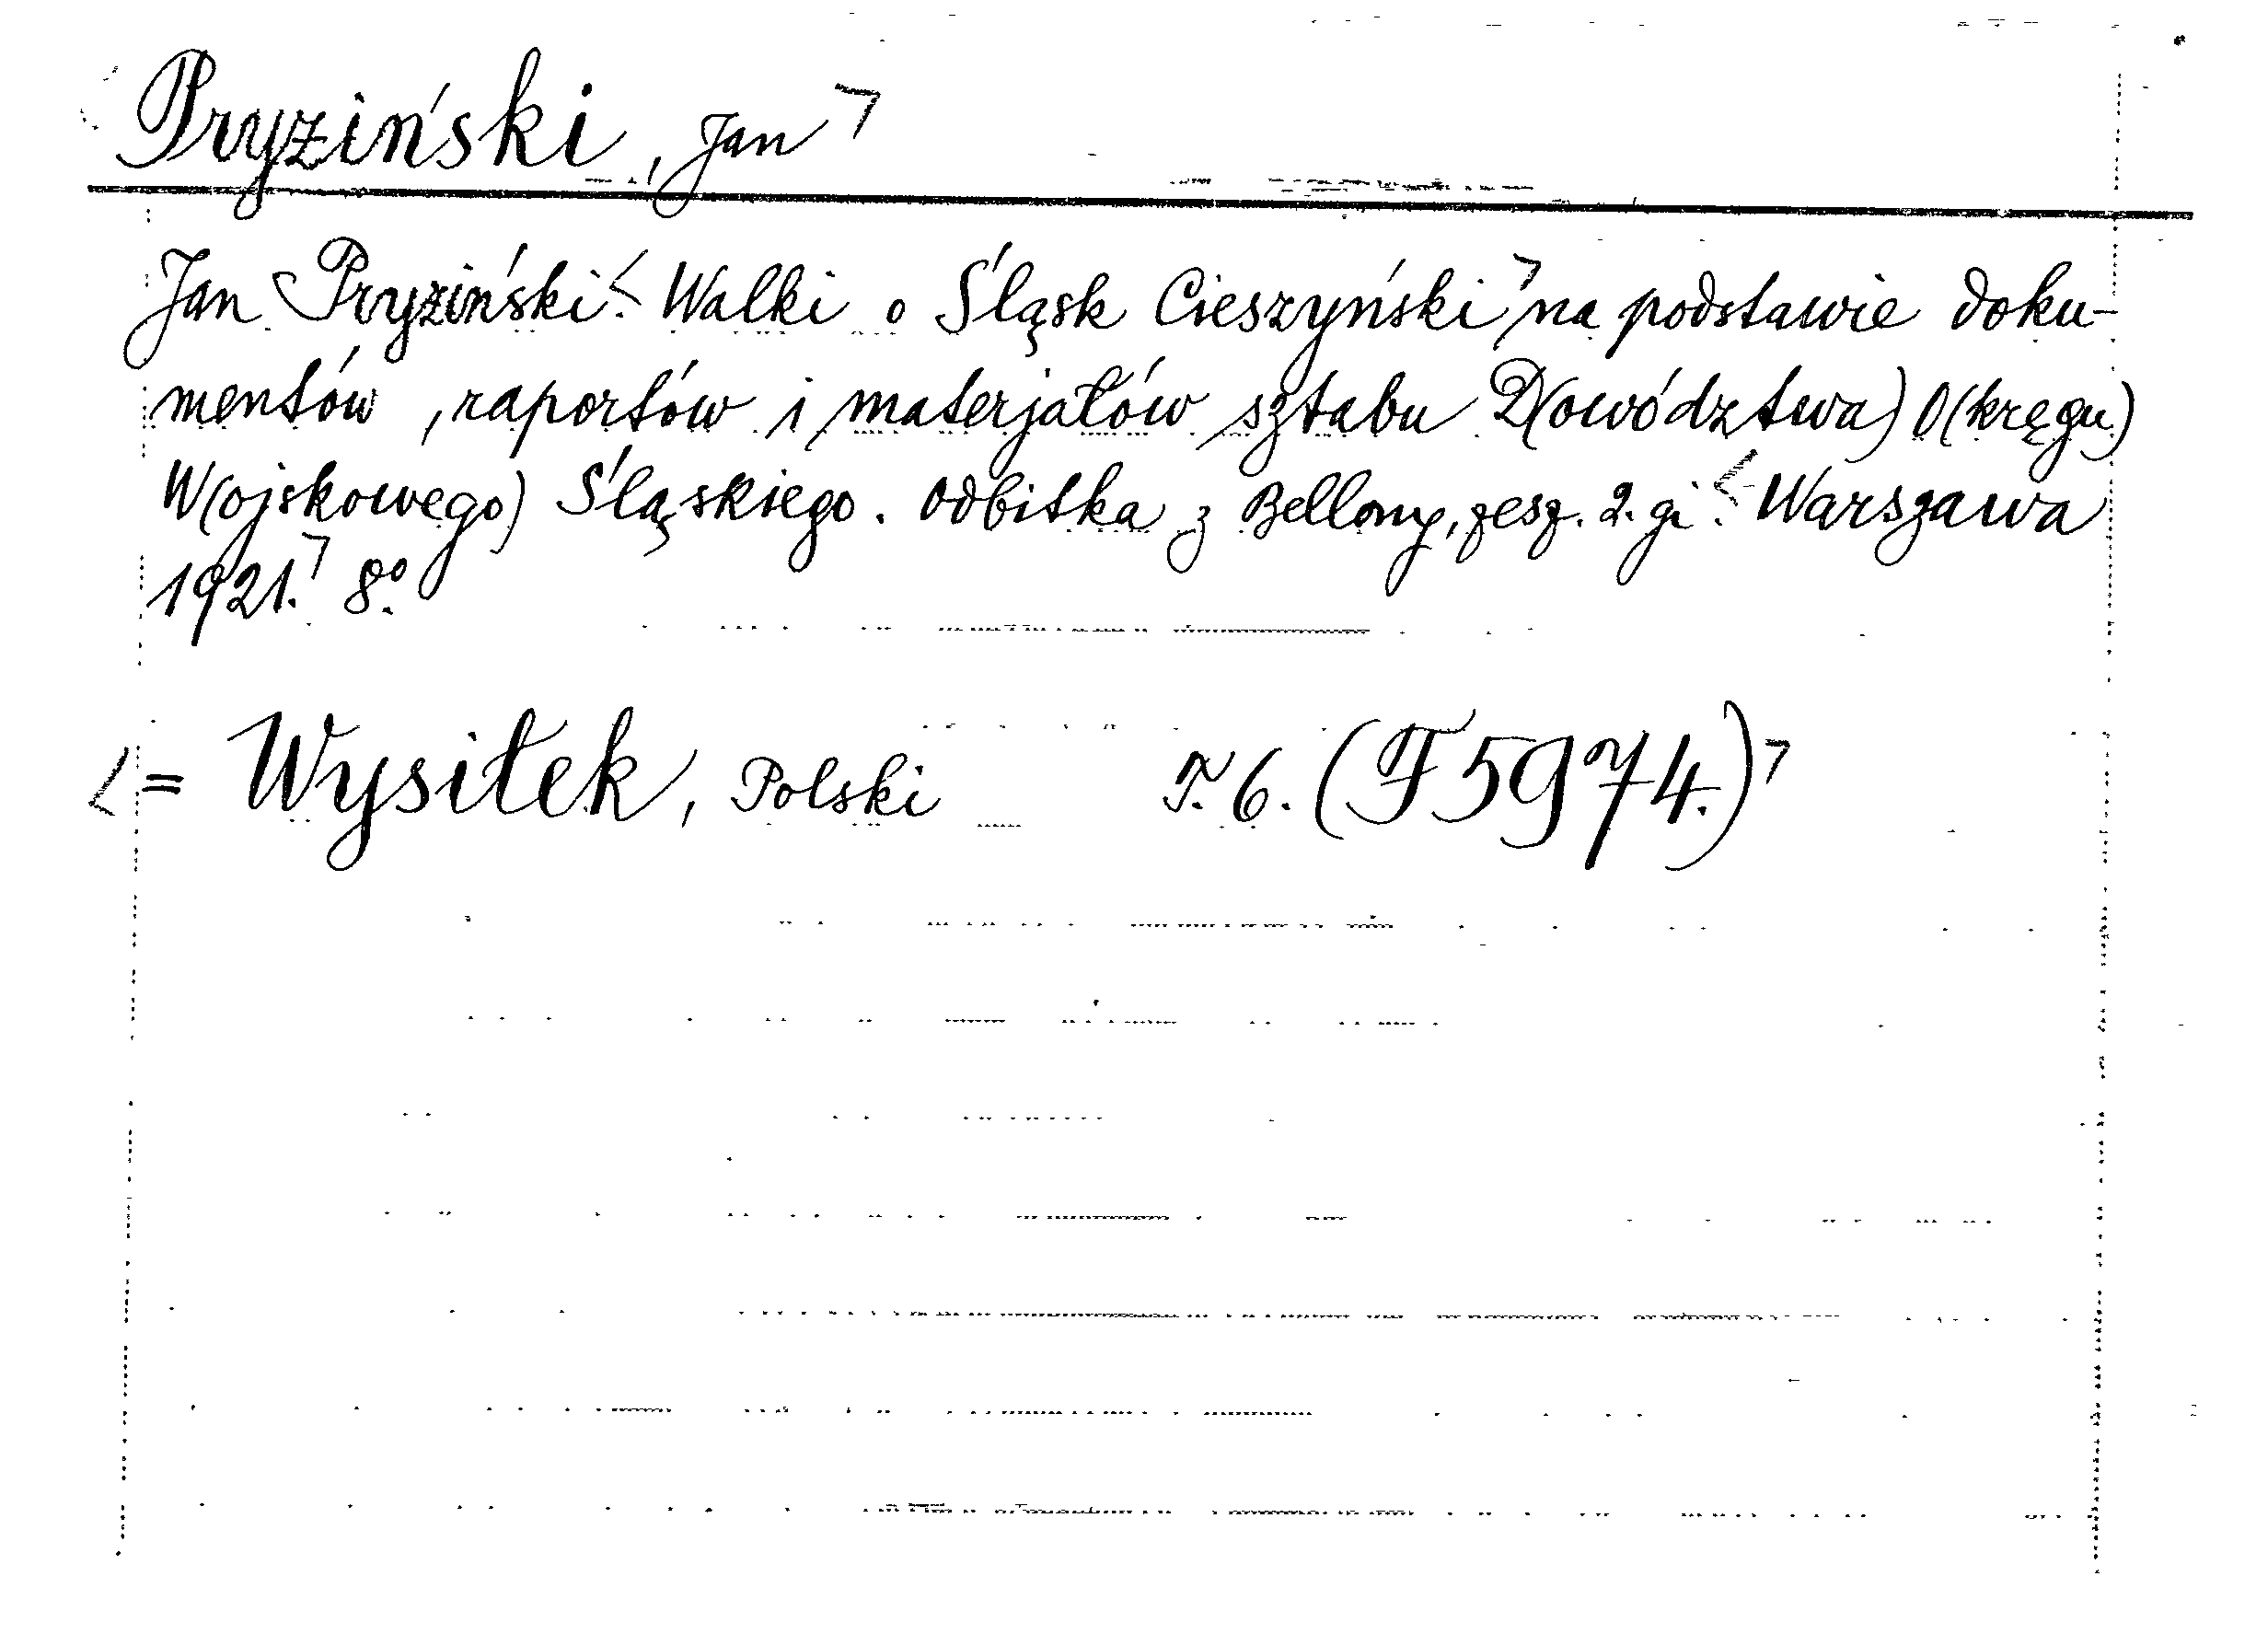 Pryziński, Jan
Jan Pryziński. Walki o Śląsk Cieszyński na podstawie doku-
mentów, raportów i materjałów sztabu D(owództwa) O(kręgu)
W(ojskowego) Śląskiego. Odbitka z Bellony, zesz. 2. gi. Warszawa
1921. 8º.
= Wysiłek, Polski T. 6. (F 5974.)